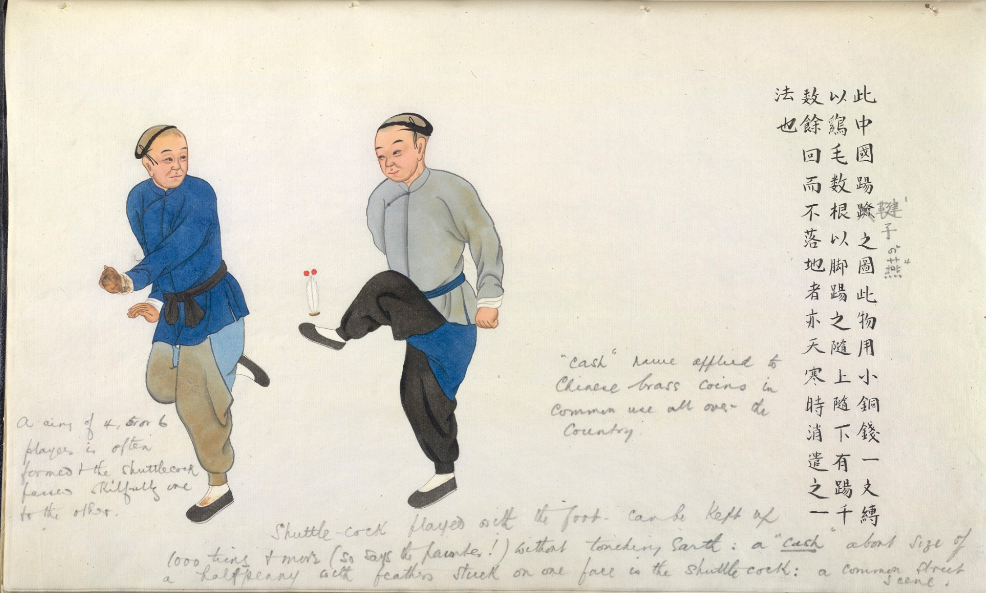 此中國踢之圖此物用小銅錢一文縛
子
燕
以鷄毛數根以脚踢之隨上隨下有踢千
数餘回而不落地者亦天寒時消遣之一
法也
"Cash" name applied to
Chinese brass coins in
Common use all over the
Country.
A ring of 4, 5 or 6
players is often
formed & the shuttlecock
passes skilfully one
to the other.
Shuttle-cock played with the foot. can be kept up
1000 times & more (so says the painter!) without touching Earth: a "cash" about size of
a halfpenny with feathers stuck on one face is the shuttlecock: a common street
scene.